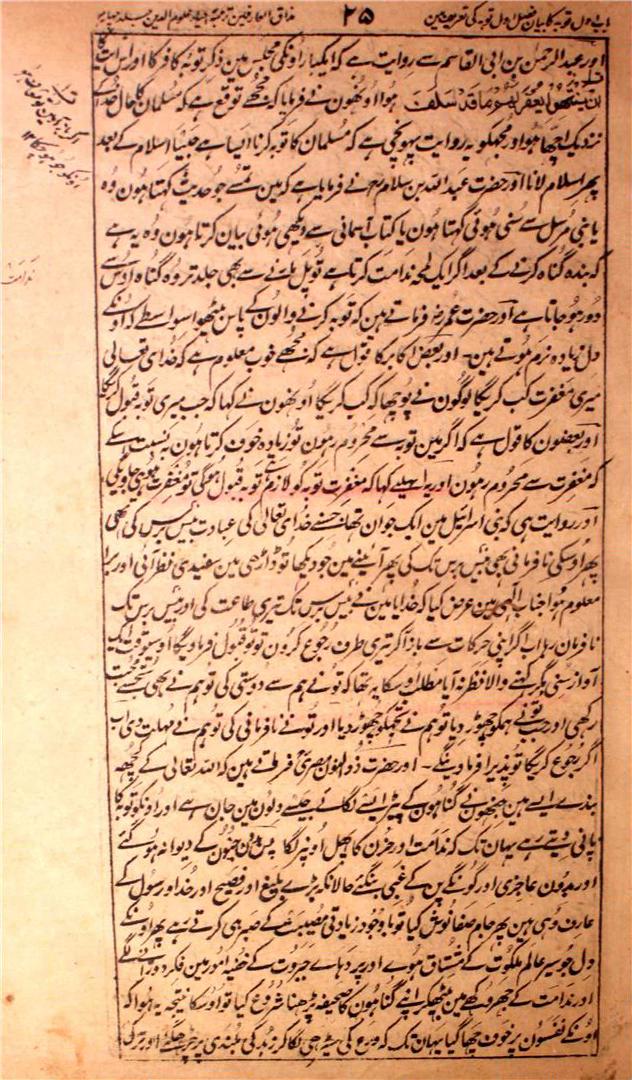 باب اول توبہ کا بیان فصل اول توبہ کی تعریف میں ۲۵ مذاق العارفین ترجمۂ احیاء علوم الدین جلد چہارم
اور عبد الرحمن بن ابی القاسم سے روایت ہے کہ ایکبار اونکی مجلس مین ذکر توبۂ کافر کا اور اس آیت کا
ان ینتھوا یغفر لھم ما قد سلف ہوا اونھون نے فرمایا کہ مجھے توقع ہے کہ مسلمان کا حال خدا کے
نزدیک اچھا ہو اور مجھکو یہ روایت پہونچی ہے کہ مسلمان کا توبہ کرنا ایسا ہے جیسا اسلام کے بعد
پھر اسلام لانا اور حضرت عبد اللہ بن سلام رضی نے فرمایا ہے کہ مین تمسے جو حدیث کہتا ہون وہ
یا نبی مرسل سے سنی ہوئی کہتا ہون یا کتاب آسمانی سے دیکھی ہوئی بیان کرتا ہون وہ یہ ہے
کہ بندہ گناہ کرنے کے بعد اگر ایک لمحہ ندامت کرتا ہے تو پل مارنے سے بھی جلد تر وہ گناہ اوس سے
دور ہو جاتا ہے اور حضرت عمر رض فرماتے ہین کہ توبہ کرنے والون کے پاس بیٹھو اسواسطے کہ اونکے
دل زیادہ نرم ہوتے ہین۔ اور بعض اکابر کا قول ہے کہ مجھے خوب معلوم ہے کہ خدای تعالی
میری مغفرت کب کریگا لوگون نے پوچھا کہ کب کریگا اونھون نے کہا کہ جب میری توبہ قبول کریگا
اور بعضون کا قول ہے کہ اگر مین توبہ سے محروم رہون تو زیادہ خوف کرتا ہون بہ نسبت اسکے
کہ مغفرت سے محروم رہون اور یہ اسلیے کہا کہ مغفرت توبہ کو لازم ہے توبہ قبول ہوگی تو مغفرت ہو ہی جاویگی
اور روایت ہی کہ بنی اسرائیل مین ایک جوان تھا جسنے خدای تعالی کی عبادت بیس برس کی تھی
پھر اوسکی نافرمانی بھی بیس برس تک کی پھر آئینے مین جو دیکھا تو ڈاڑھی مین سفیدی نظر آئی اور برا
معلوم ہوا جناب الٰہی مین عرض کیا کہ خدایا مین نے بیس برس تک تیری طاعت کی اور بیس برس تک
نافرمان رہا اب اگر اپنی حرکات سے باز آکر تیری طرف رجوع کرون تو تو قبول فرماویگا اوسیوقت ایک
آواز سنی مگر کہنے والا نظر نہ آیا مطلب اوسکا یہ تھا کہ تو نے ہم سے دوستی کی تو ہم نے بھی تجھسے محبت
رکھی اور جب تو نے ہمکو چھوڑ دیا تو ہم نے تجھکو چھوڑ دیا اور تو نے نافرمانی کی تو ہم نے مہلت دی اب
اگر رجوع کریگا تو پذیرا فرماوینگے۔ اور حضرت ذوالنون مصری فرماتے ہین کہ اللہ تعالی کے کچھ
بندے ایسے ہین جنھون نے گناہون کے پیڑ ایسے لگائے جیسے دلون مین جان ہے اور اونکو توبہ کا
پانی دیتے رہے یہان تک کہ ندامت اور حزن کا پھل اونپر لگا پس بدون جنون کے دیوانہ ہو گئے
اور بدون عاجزی اور گونگے پن کے غبی بنگئے حالانکہ بڑے بلیغ اور فصیح اور خدا و رسول کے
عارف وہی ہین پھر جام صفا نوش کیا تو باوجود زیادتی مصیبت کے صبر ہی کرتے رہے پھر اونکے
دل جو سیر عالم ملکوت کے مشتاق ہوے اور پردہاے جبروت کے خفیہ امور مین فکر دوڑانے لگے
اور ندامت کے جھروکے مین بیٹھکر اپنے گناہون کا صحیفہ پڑھنا شروع کیا تو اوسکا نتیجہ یہ ہوا کہ
اونکے نفسون پر خوف چھا گیا یہان تک کہ ورع کی سیڑھی لگا کر زہد کی بلندی پر چڑھ گئے اور ترک
ندامت